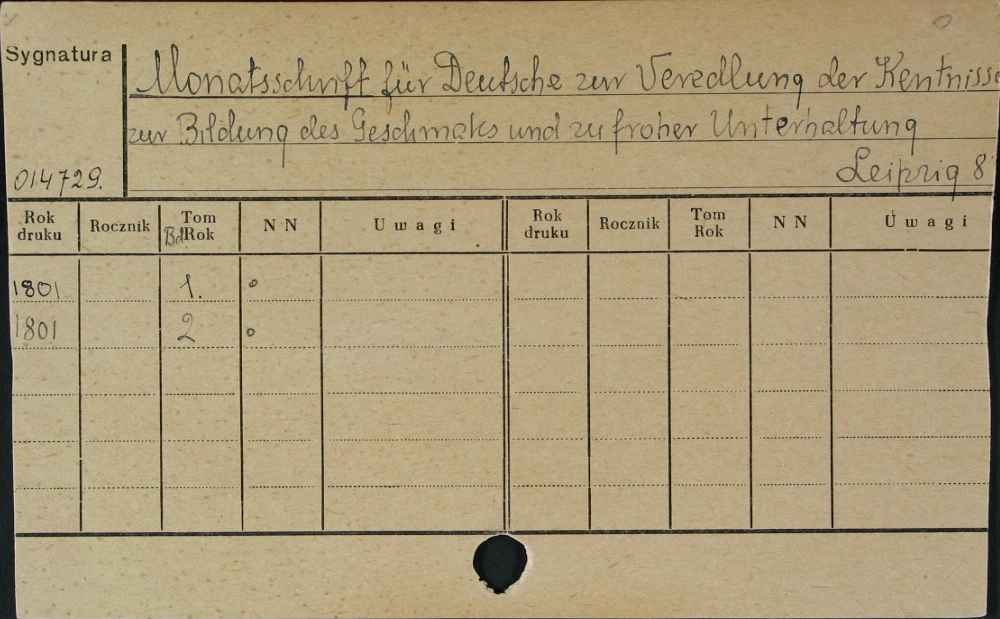 Sygnatura
Monatsschrift für Deutsche zur Veredlung der Kentnisse
zur Bildung des Geschmaks und zu froher Unterhaltung
014729.
Leipzig 8°
Rok druku Rocznik Tom Bd Rok N N Uwagi Rok druku Rocznik Tom Rok N N Uwagi
1801 1. °
1801 2 °